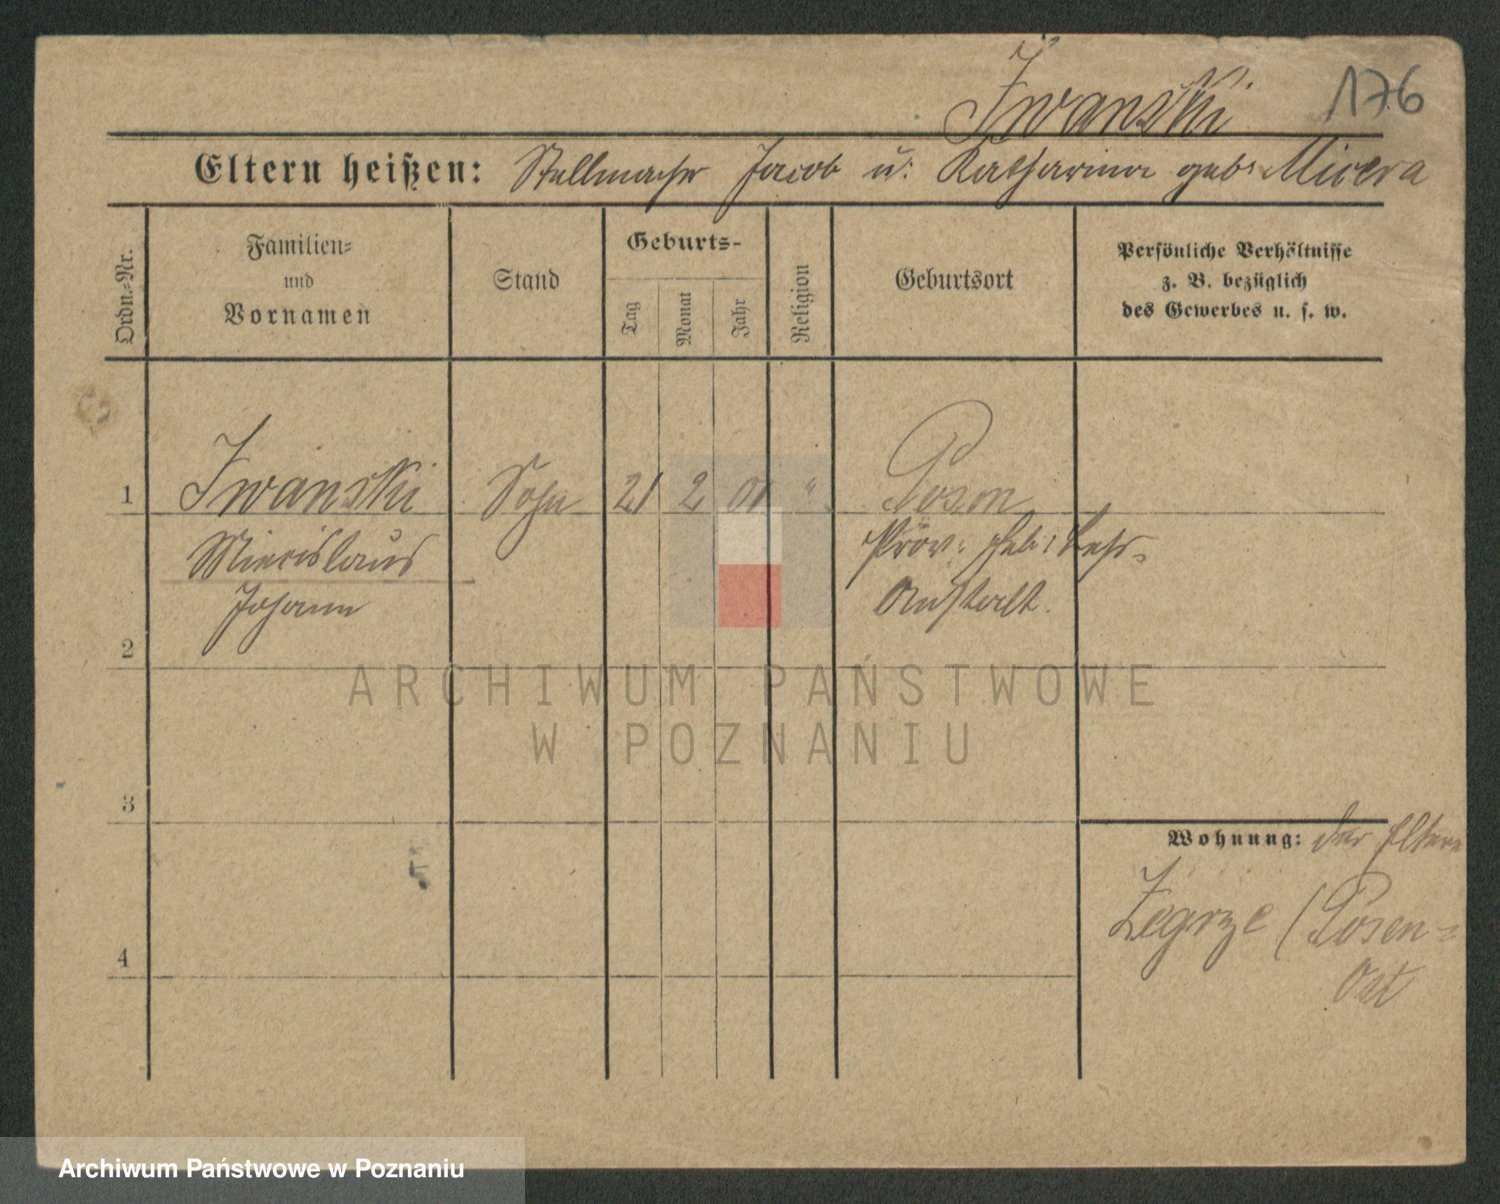 176
Iwanski
Eltern heißen: Stellmacher Jacob u. Katharina geb. Micera
Ordn.-Nr.
Familien- und Vornamen
Stand
Geburts-
Tag
Monat
Jahr
Religion
Geburtsort
Persönliche Verhältnisse
z. B. bezüglich
des Gewerbes u. s. w.
1 Iwanski Sohn 21 2 01 " Posen
Miecislaus Prov. Heb. Lehr-
Johann Anstalt.
2
ARCHIWUM PAŃSTWOWE
W POZNANIU
3
Wohnung: der Eltern
Zegrze (Posen-
Ost
4
Archiwum Państwowe w Poznaniu